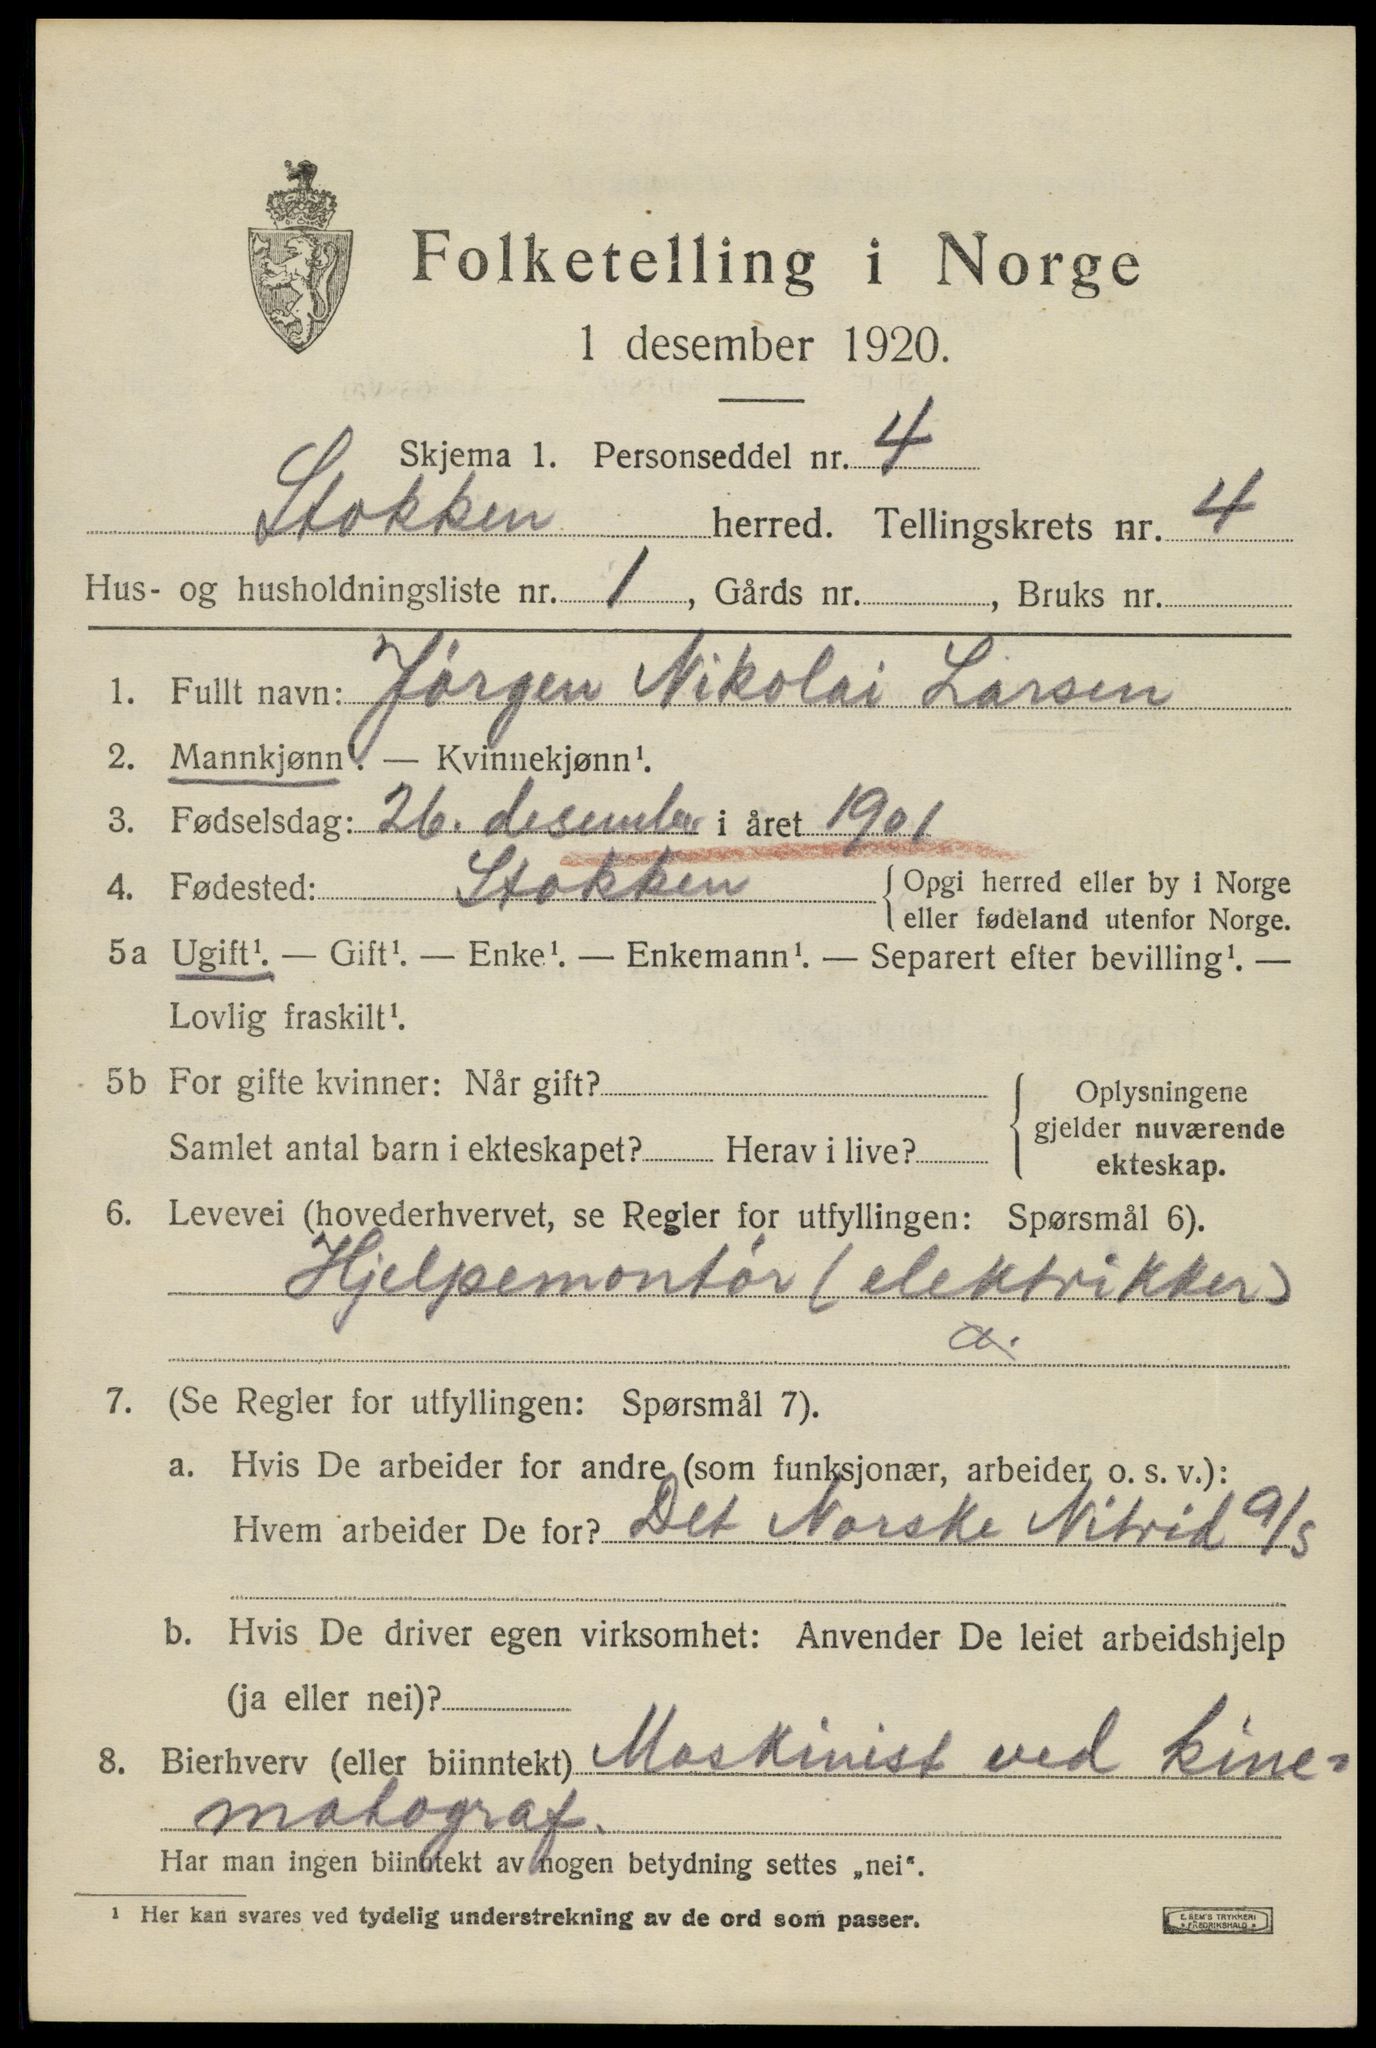 Folketelling i Norge
1 desember 1920.
Skjema 1. Personseddel nr. 4
Stokken herred. Tellingskrets nr. 4
Hus- og husholdningsliste nr. 1, Gårds nr. , Bruks nr.
1. Fullt navn: Jórgen Nikolai Larsen
2. Mannkjønn¹. — Kvinnekjønn¹.
3. Fødselsdag: 26. desember i året 1901
4. Fødested: Stokken { Opgi herred eller by i Norge
eller fødeland utenfor Norge.
5a Ugift¹. — Gift¹. — Enke¹. — Enkemann¹. — Separert efter bevilling¹. —
Lovlig fraskilt¹.
5b For gifte kvinner: Når gift? { Oplysningene
gjelder nuværende
ekteskap.
Samlet antal barn i ekteskapet? Herav i live?
6. Levevei (hovederhvervet, se Regler for utfyllingen: Spørsmål 6).
Hjelpemontór (elektrikker)
a.
7. (Se Regler for utfyllingen: Spørsmål 7).
a. Hvis De arbeider for andre (som funksjonær, arbeider o. s. v.):
Hvem arbeider De for? Det Norske Nitrid a/s
b. Hvis De driver egen virksomhet: Anvender De leiet arbeidshjelp
(ja eller nei)?
8. Bierhverv (eller biinntekt) Maskinist ved kine=
matograf.
Har man ingen biinntekt av nogen betydning settes „nei“.
¹ Her kan svares ved tydelig understrekning av de ord som passer.
E. SEM'S TRYKKERI
FREDRIKSHALD